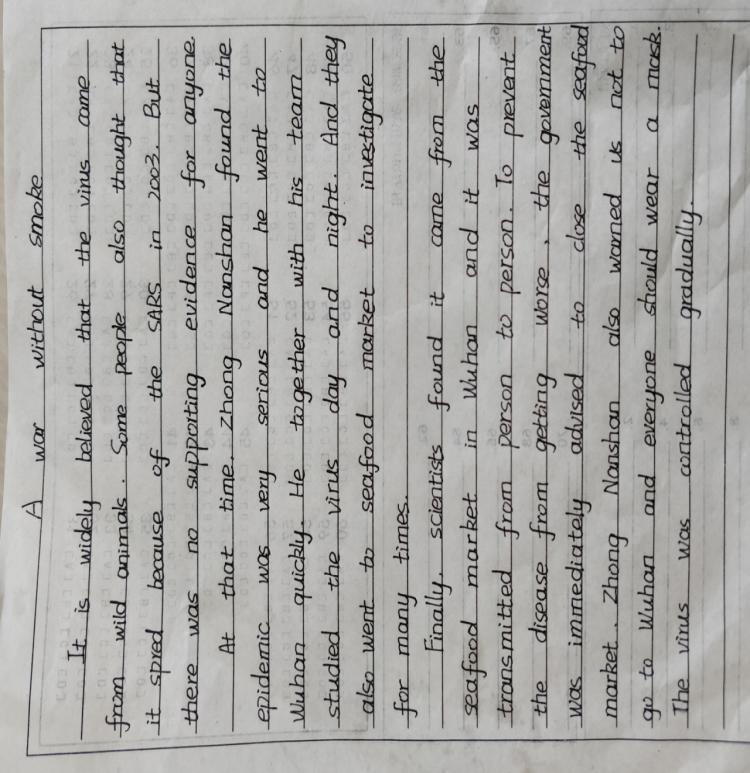 A war without smoke
It is widely believed that the virus came
from wild animals. Some people also thought that
it spred because of the SARS in 2003. But
there was no supporting evidence for anyone.
At that time. Zhong Nanshan found the
epidemic was very serious and he went to
Wuhan quickly. He together with his team
studied the virus day and night. And they
also went to seafood market to investigate
for many times.
Finally. scientists found it came from the
seafood market in Wuhan and it was
transmitted from person to person. To prevent
the disease from getting worse, the government
was immediately advised to close the seafood
market. Zhong Nanshan also warned us not to
go to Wuhan and everyone should wear a mask.
The virus was controlled gradually.